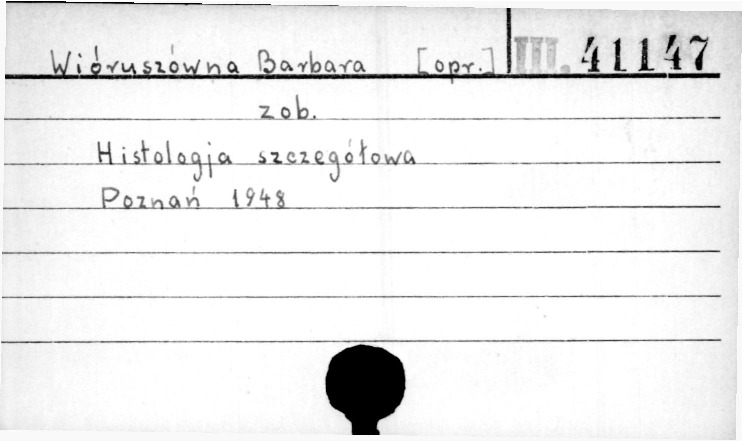 Wióruszówna Barbara [opr.] III. 41147
zob.
Histologja szczegółowa
Poznań 1948